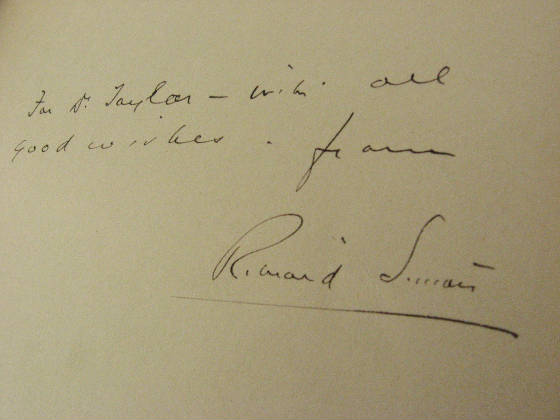 For Dr. Taylor – with all
good wishes. from
Richard